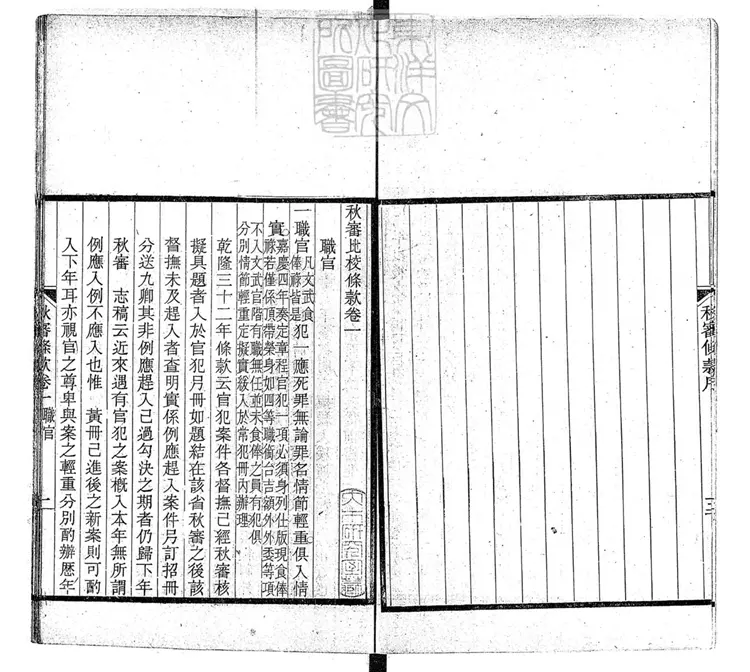 東洋文化研究所圖書
秋審條款序
秋審比校條款卷一
職官
一職官凡文武食俸祿皆是犯一應死罪無論罪名情節輕重俱入情
實嘉慶四年奏定章程官犯一項必須身列仕版現食俸祿若僅係頂帶榮身如四等職銜台吉額外外委等項
不入文武官階有職無任並未食俸之員有犯俱分別情節輕重定擬實緩入於常犯冊內辦理
乾隆三十二年條款云官犯案件各督撫已經秋審核
擬具題者入於官犯月冊如題結在該省秋審之後該
督撫未及趕入者查明實係例應趕入案件另訂招冊
分送九卿其非例應趕入已過勾決之期者仍歸下年
秋審 志稿云近來遇有官犯之案概入本年無所謂
例應入例不應入也惟 黃冊已進後之新案則可酌
入下年耳亦視官之尊卑與案之輕重分別酌辦歷年
秋審條款卷一 職官 一